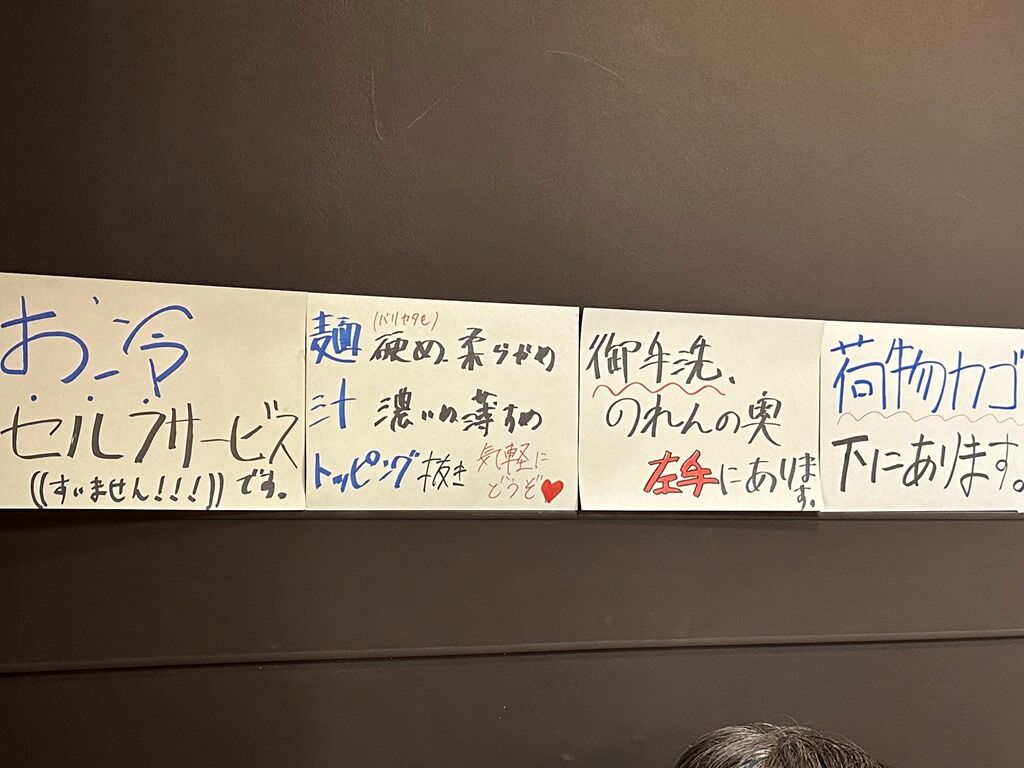 お冷
セルフサービス
((すいません!!!))です。
麺 (バリカタも) 硬め 柔らかめ
汁 濃いめ 薄すめ
トッピング 抜き 気軽に
どうぞ♥
御手洗、
のれんの奥
左手にあります。
荷物カゴ
下にあります。